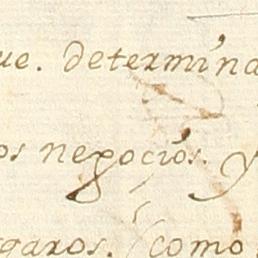 ue. determina
os negocios. y
garos. (como